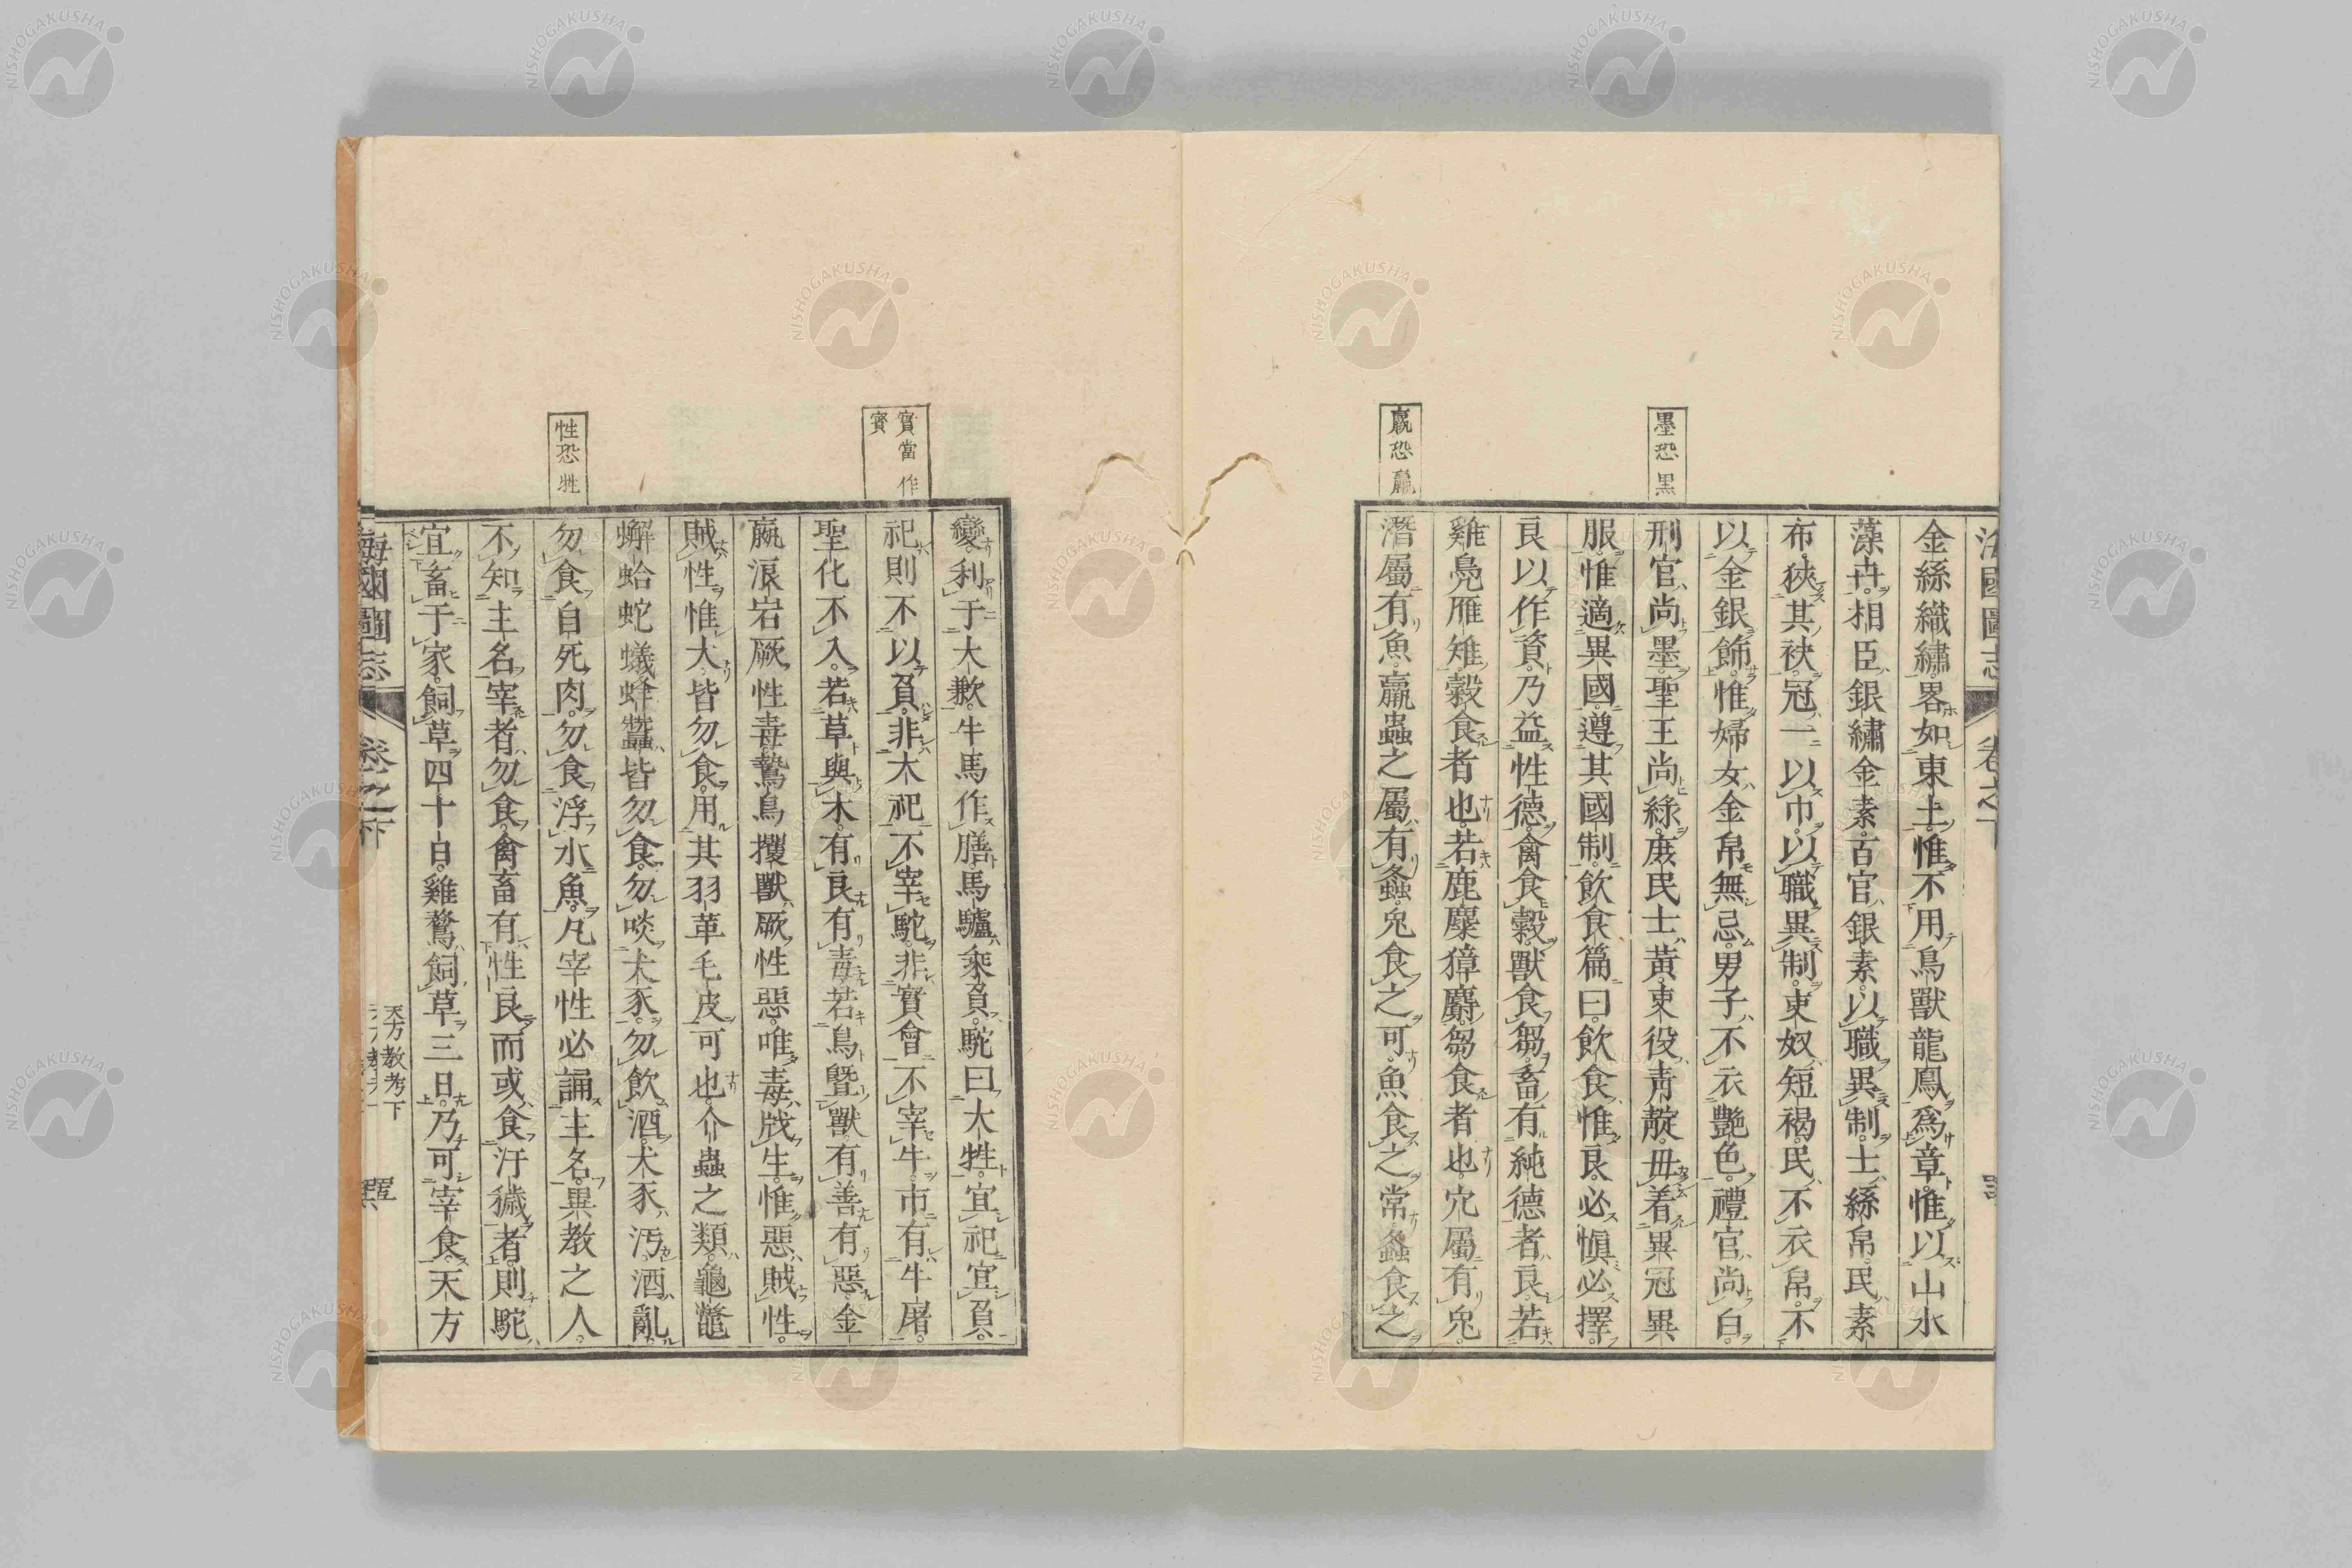 海國圖志 卷之下
墨恐黑
贏恐羸
金絲織繡畧如東土惟不用鳥獸龍鳳爲章惟以山水
藻卉相臣銀繡金素百官銀素以職異制士絲帛民素
布狹其袂冠一以巾以職異制吏奴短褐民不衣帛不
以金銀飾惟婦女金帛無忌男子不衣艷色禮官尚白
刑官尚墨聖王尚綠庶民士黃吏役靑靛毋着異冠異
服惟適異國遵其國制飲食篇曰飲食惟良必愼必擇
良以作資乃益性德禽食穀獸食芻畜有純德者良若
雞鳧雁雉穀食者也若鹿麋獐麝芻食者也穴屬有兔
潛屬有魚贏蟲之屬有螽兔食之可魚食之常螽食之
實當作賓
性恐牲
變利于大歉牛馬作膳馬驢乘負駝曰大牲宜祀宜負
祀則不以負非大祀不宰駝非實會不宰牛市有牛屠
聖化不入若草與木有良有毒若鳥曁獸有善有惡金
贏淚宕厥性毒鷙鳥攫獸厥性惡唯毒戕生惟惡賊性
賊性惟大皆勿食用其羽革毛皮可也介蟲之類龜鼈
蠏蛤蛇蟻蜂蠶皆勿食勿啖犬豕勿飲酒犬豕汚酒亂
勿食自死肉勿食浮水魚凡宰性必誦主名異教之人
不知主名宰者勿食禽畜有性良而或食汙穢者則駝
宜畜于家飼草四十日雞鶩飼草三日乃可宰食天方
海國圖志 卷之下 天方教考下